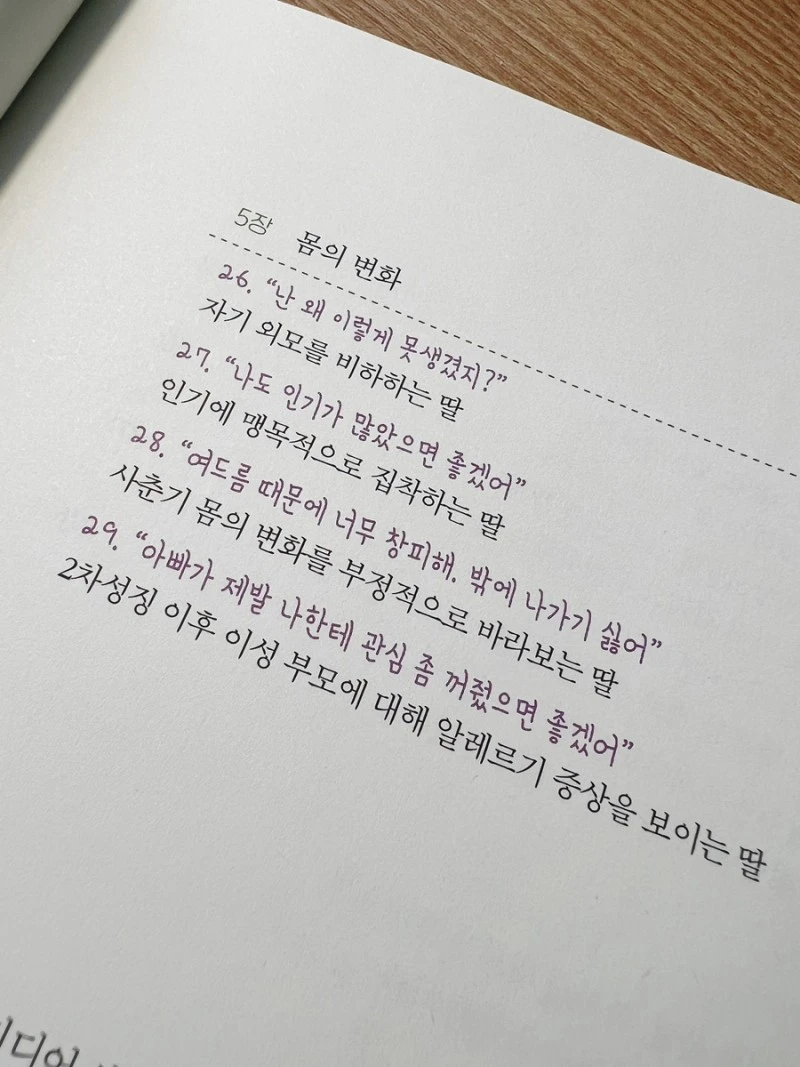 5장 몸의 변화
26. “난 왜 이렇게 못생겼지?”
자기 외모를 비하하는 딸
27. “나도 인기가 많았으면 좋겠어”
인기에 맹목적으로 집착하는 딸
28. “여드름 때문에 너무 창피해. 밖에 나가기 싫어”
사춘기 몸의 변화를 부정적으로 바라보는 딸
29. “아빠가 제발 나한테 관심 좀 꺼줬으면 좋겠어”
2차성징 이후 이성 부모에 대해 알레르기 증상을 보이는 딸